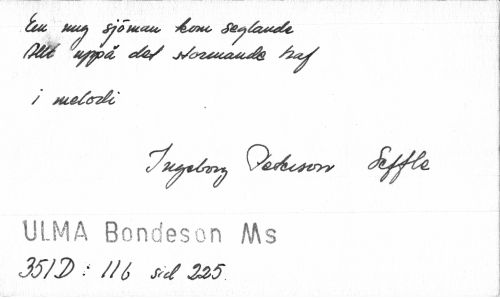 En ung sjöman kom seglande
Allt uppå det stormande haf
i melodi
Ingeborg Peterson Seffle
ULMA Bondeson Ms
351D: 116 sid 225.